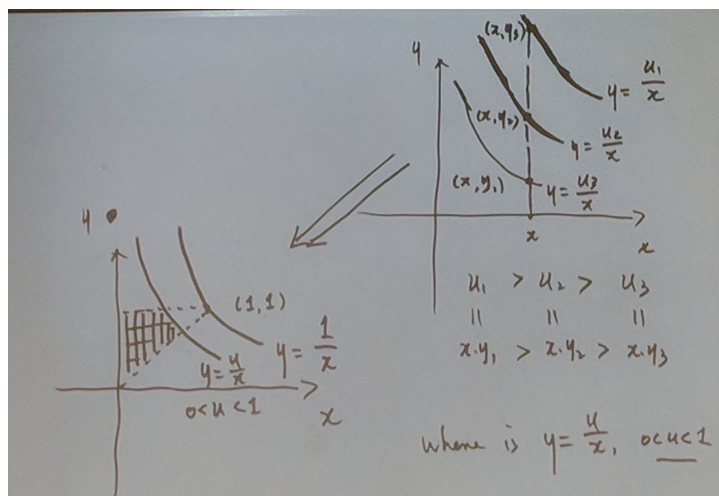 y
(x, y₃)
y = u₁/x
(x, y₂)
y = u₂/x
(x, y₁)
y = u₃/x
x
x
u₁ > u₂ > u₃
|| || ||
x.y₁ > x.y₂ > x.y₃
where is y = u/x, 0<u<1
y
(1,1)
y = 1/x
y = u/x
0<u<1
x